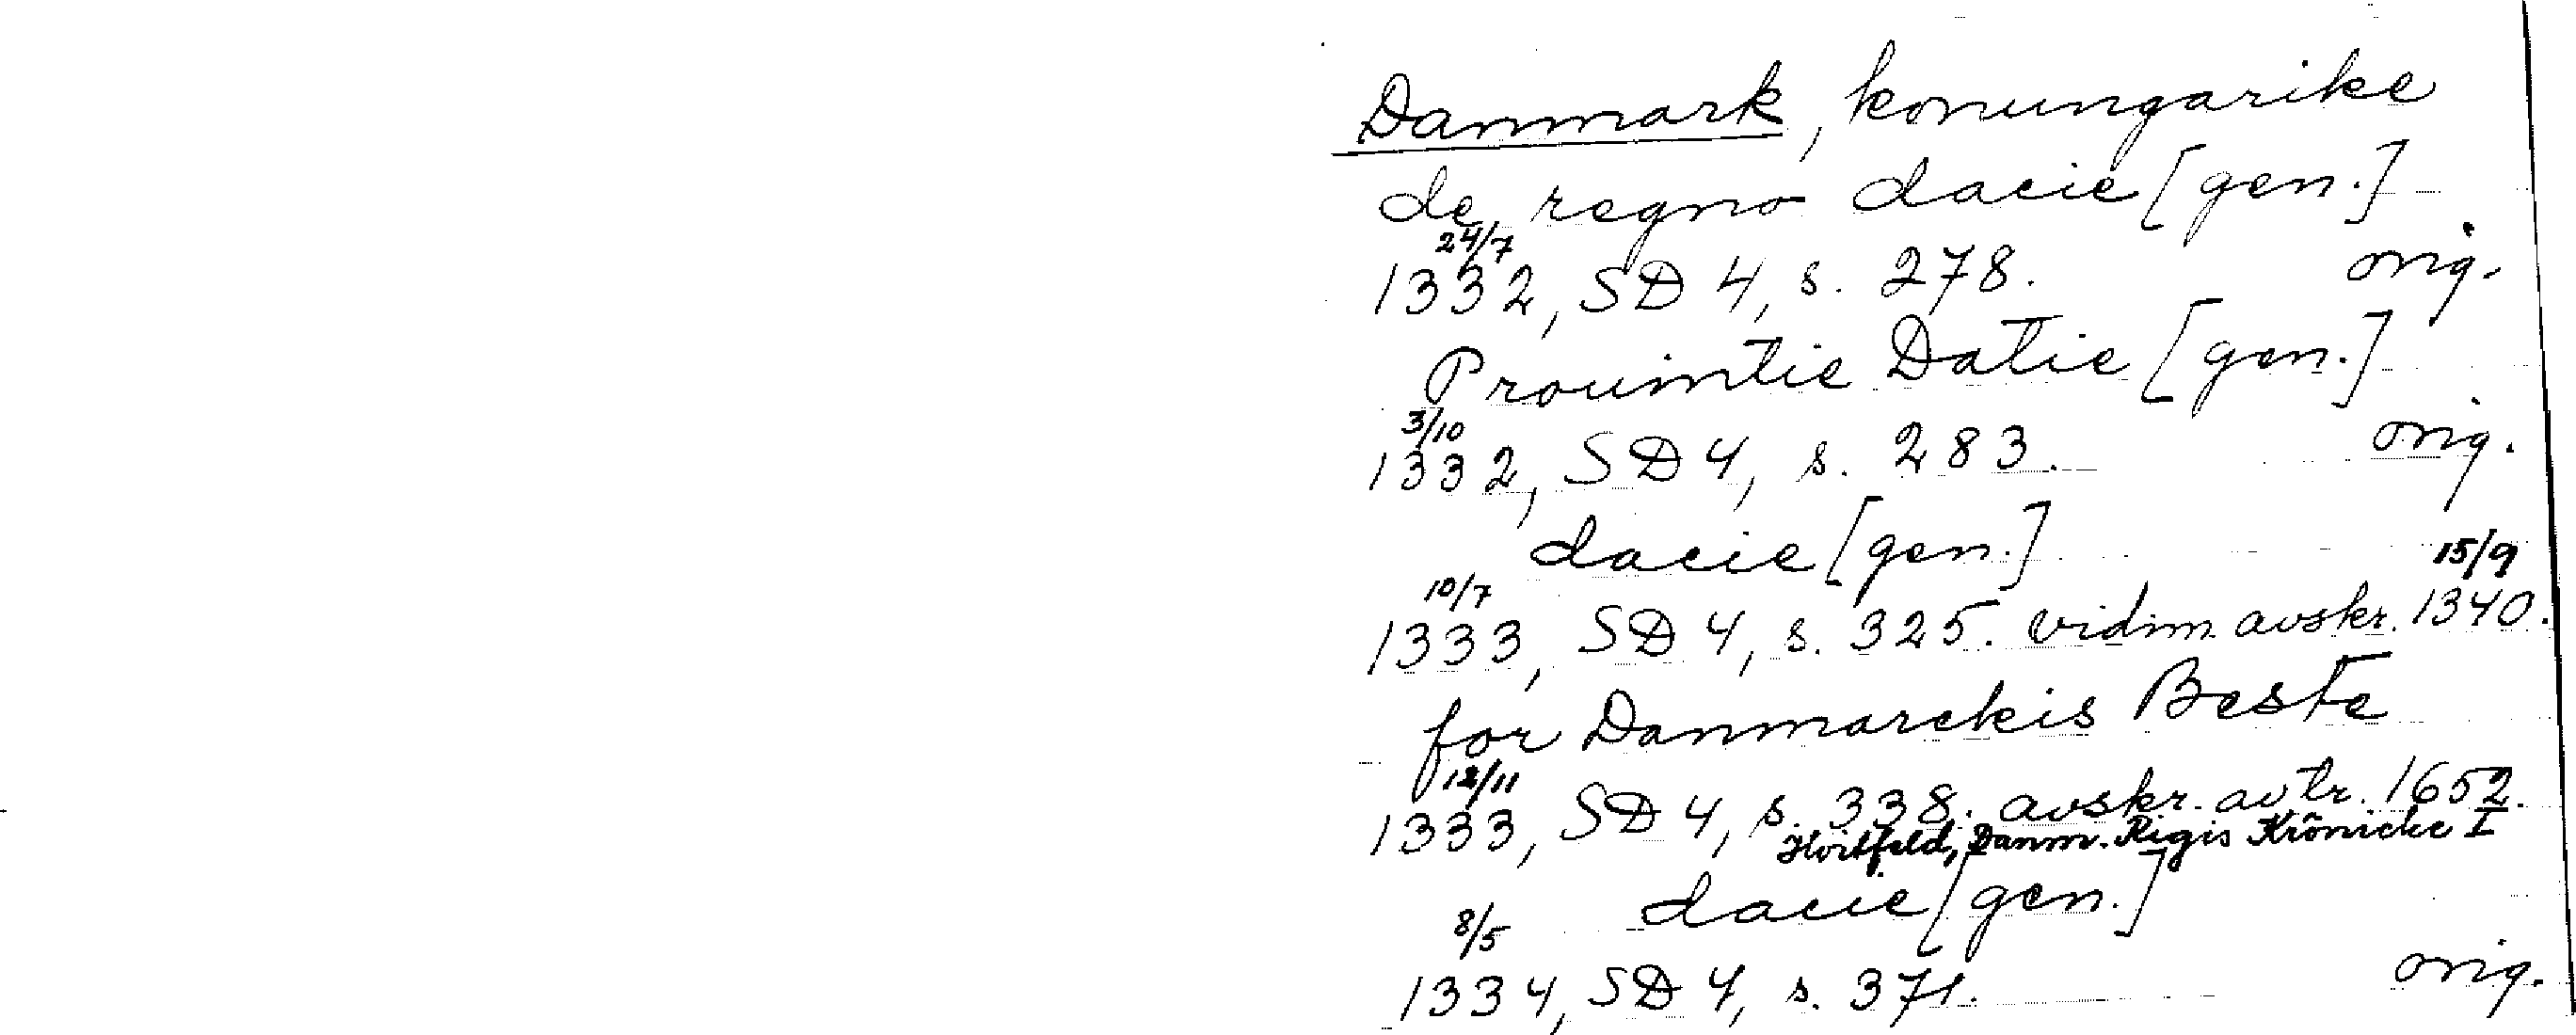 Danmark, konungarike
de regno dacie [gen.]
24/7
1332, SD 4, s. 278. orig.
Prouintie Datie [gen.]
3/10
1332, SD 4, s. 283. orig.
dacie [gen.]
10/7 15/9
1333, SD 4, s. 325. vidim. avskr. 1340.
for Danmarckis Beste
12/11
1333, SD 4, s. 338. avskr. av tr. 1652.
Hvitfeld, Danm. Rigis Krönicke I
dacie [gen.]
8/5
1334, SD 4, s. 371. orig.